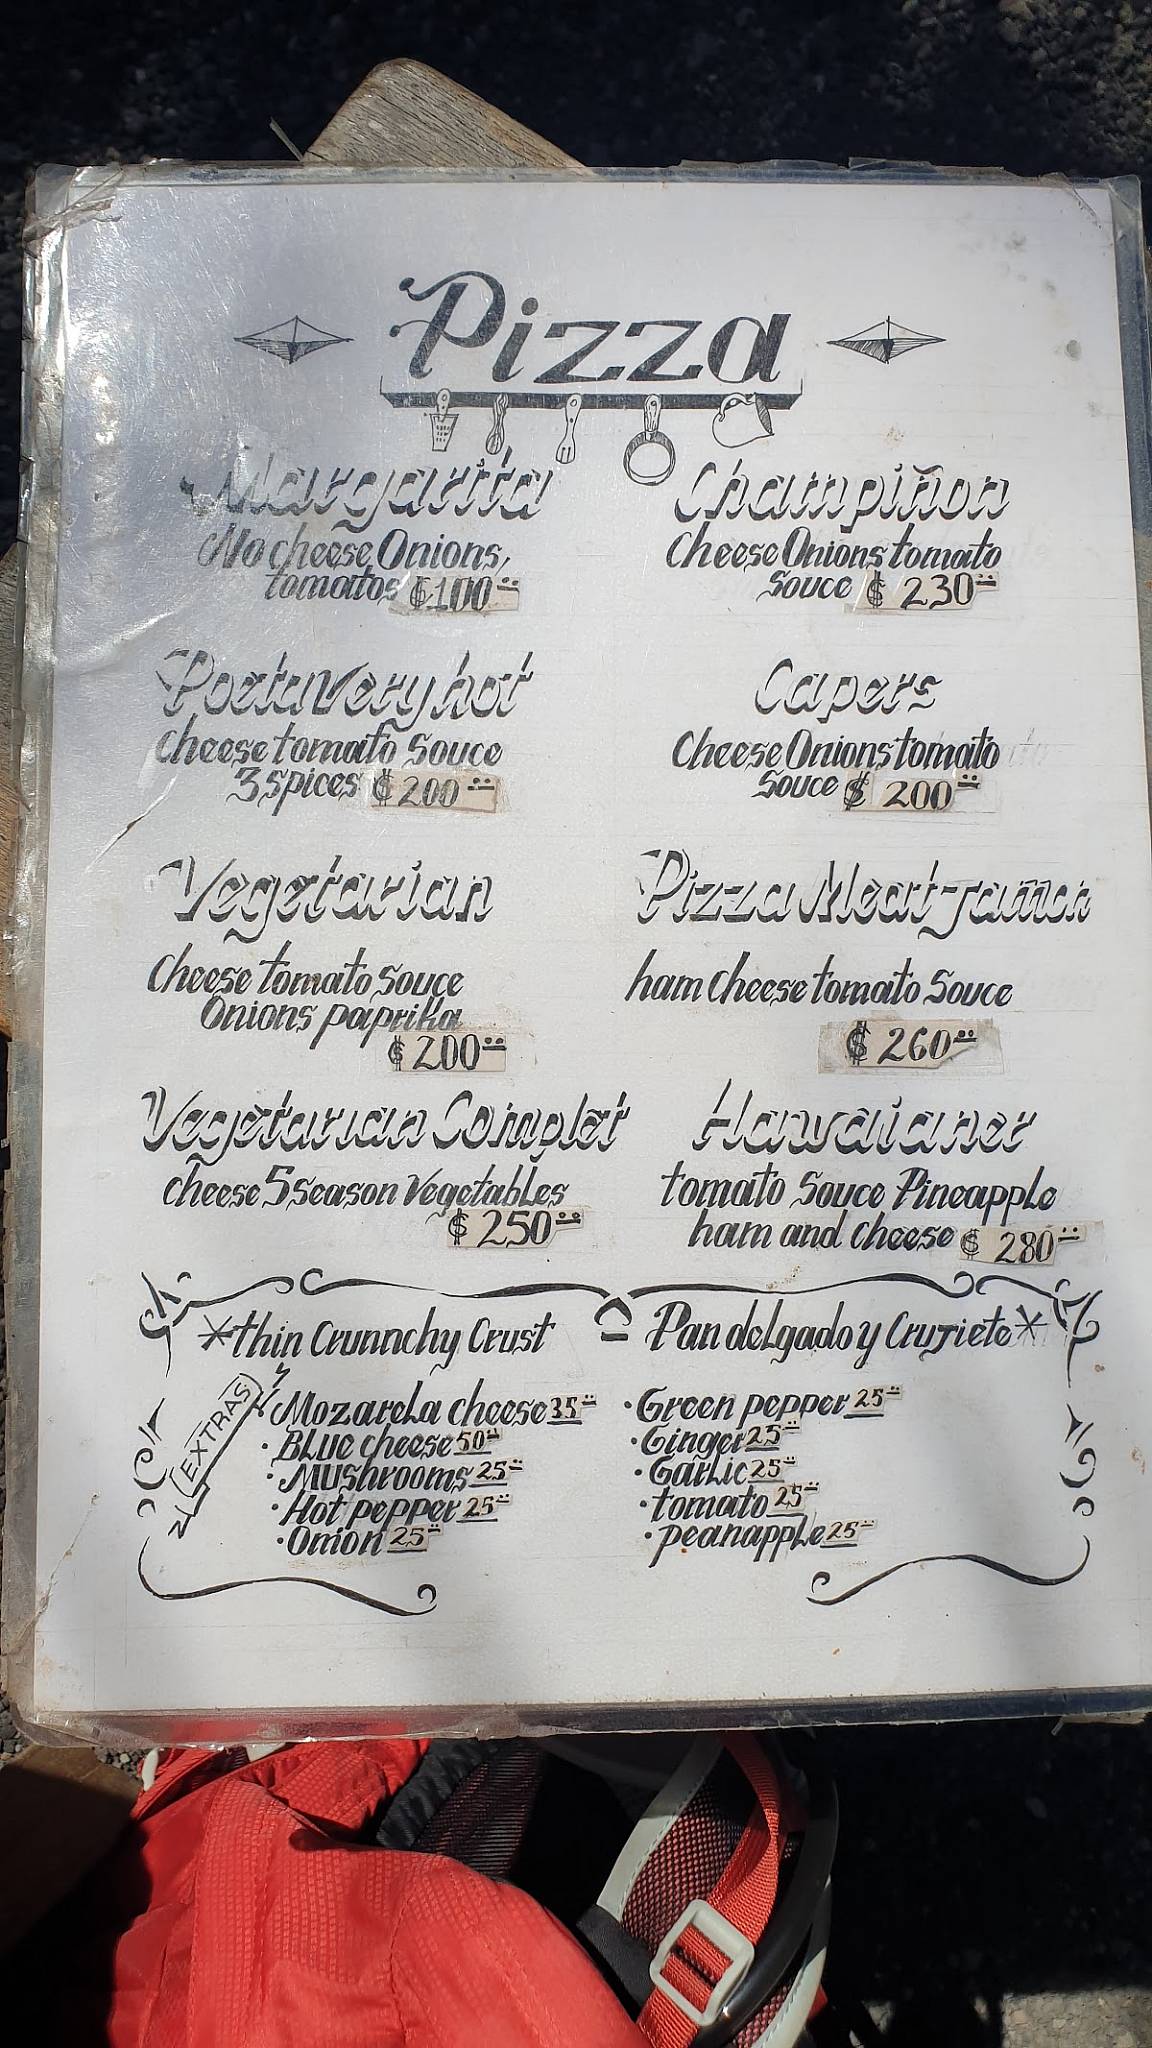 Pizza
Margarita
No cheese Onions,
tomatos $100
Poeta Very hot
Cheese tomato Souce
3 spices $200
Vegetarian
Cheese tomato Souce
Onions paprika
$200
Vegetarian Complet
cheese 5 season Vegetables
$250
Champiñon
Cheese Onions tomato
Souce $230
Capers
Cheese Onions tomato
Souce $200
Pizza Meat-jamon
ham Cheese tomato Souce
$260
Hawaianer
tomato Souce Pineapple
ham and cheese $280
*thin Crunnchy Crust
Pan delgado y Crujiete*
EXTRAS
Mozarela cheese 35
·Blue cheese 50
·Mushrooms 25
·Hot pepper 25
·Onion 25
·Green pepper 25
·Ginger 25
·Garlic 25
·tomato 25
·peanapple 25